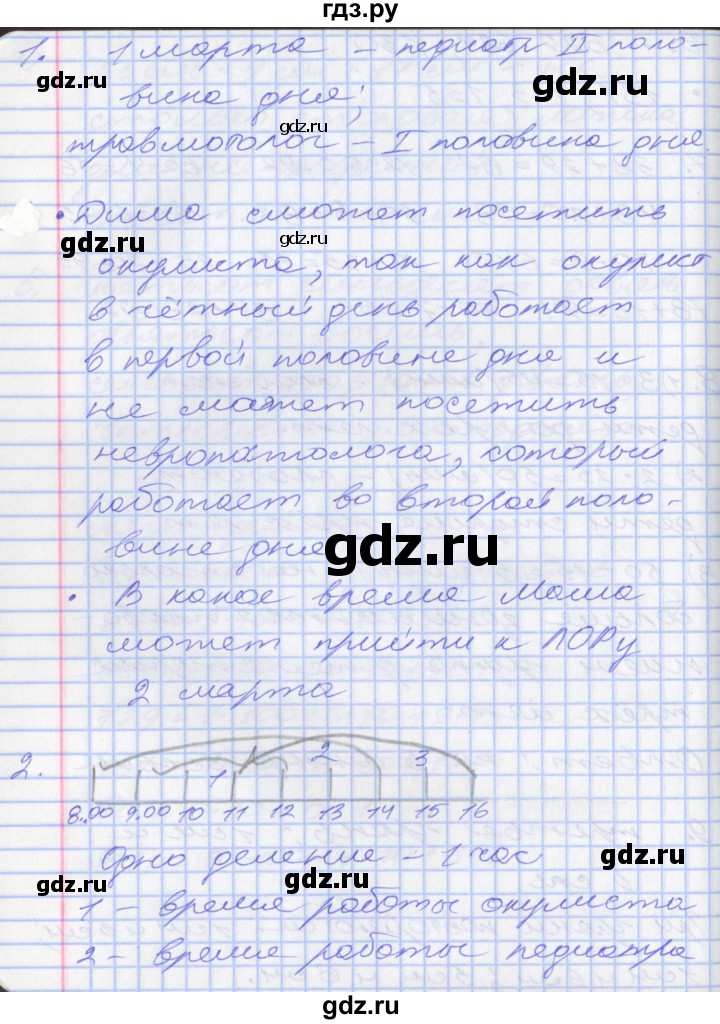 гдз.ру
1. 1 марта – педиатр II поло-
вина дня;
травмотолог – I половина дня.
• Дима сможет посетить
окулиста, так как окулист
в чётный день работает
в первой половине дня и
не может посетить
невропатолога, который
работает во второй поло-
вине дня
• В какое время Маша
может прийти к ЛОРу
2 марта
2. 1 2 3
8.00 9.00 10 11 12 13 14 15 16
Одно деление – 1 час
1 – время работы окулиста
2 – время работы педиатра
gdz.ru
gdz.ru
gdz.ru
gdz.ru
gdz.ru
gdz.ru
gdz.ru
gdz.ru
gdz.ru
gdz.ru
gdz.ru
gdz.ru
gdz.ru